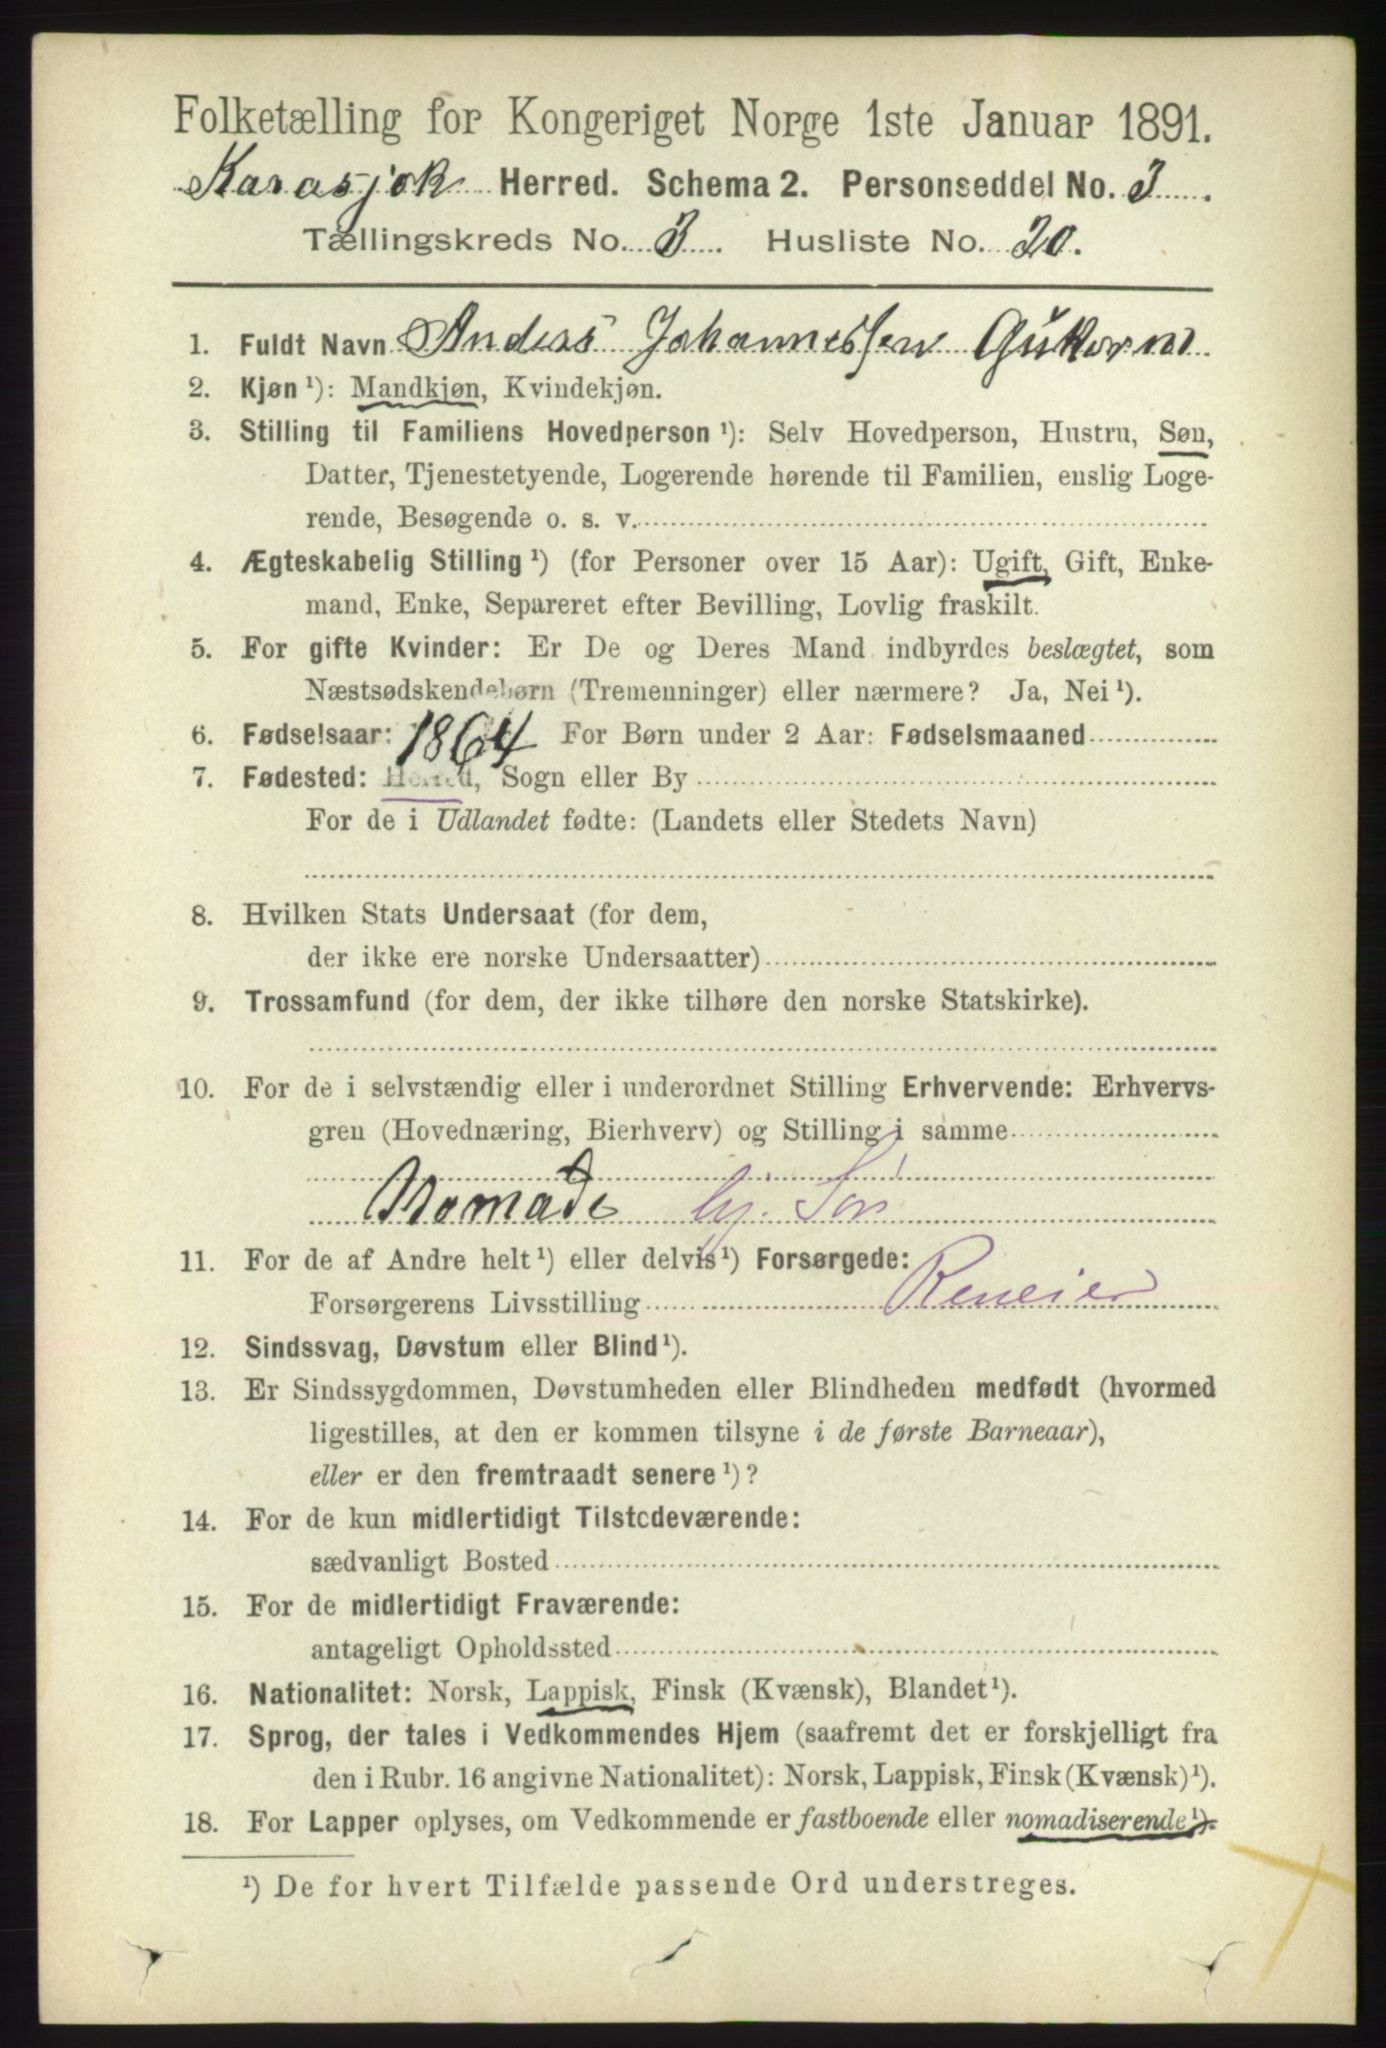 Folketælling for Kongeriget Norge 1ste Januar 1891.
Karasjok Herred. Schema 2. Personseddel No. 3.
Tællingskreds No. 3. Husliste No. 20.
1. Fuldt Navn Anders Johannessen Gŭtorm
2. Kjøn ¹): Mandkjøn, Kvindekjøn.
3. Stilling til Familiens Hovedperson ¹): Selv Hovedperson, Hustru, Søn,
Datter, Tjenestetyende, Logerende hørende til Familien, enslig Loge-
rende, Besøgende o. s. v.
4. Ægteskabelig Stilling ¹) (for Personer over 15 Aar): Ugift, Gift, Enke-
mand, Enke, Separeret efter Bevilling, Lovlig fraskilt.
5. For gifte Kvinder: Er De og Deres Mand indbyrdes beslægtet, som
Næstsødskendebørn (Tremenninger) eller nærmere? Ja, Nei ¹).
6. Fødselsaar: 1864 For Børn under 2 Aar: Fødselsmaaned
7. Fødested: Herred, Sogn eller By
For de i Udlandet fødte: (Landets eller Stedets Navn)
8. Hvilken Stats Undersaat (for dem,
der ikke ere norske Undersaatter)
9. Trossamfund (for dem, der ikke tilhøre den norske Statskirke).
10. For de i selvstændig eller i underordnet Stilling Erhvervende: Erhvervs-
gren (Hovednæring, Bierhverv) og Stilling i samme
Nomade hj. Søn
11. For de af Andre helt ¹) eller delvis ¹) Forsørgede:
Forsørgerens Livsstilling Reneier
12. Sindssvag, Døvstum eller Blind ¹).
13. Er Sindssygdommen, Døvstumheden eller Blindheden medfødt (hvormed
ligestilles, at den er kommen tilsyne i de første Barneaar),
eller er den fremtraadt senere ¹)?
14. For de kun midlertidigt Tilstedeværende:
sædvanligt Bosted
15. For de midlertidigt Fraværende:
antageligt Opholdssted
16. Nationalitet: Norsk, Lappisk, Finsk (Kvænsk), Blandet ¹).
17. Sprog, der tales i Vedkommendes Hjem (saafremt det er forskjelligt fra
den i Rubr. 16 angivne Nationalitet): Norsk, Lappisk, Finsk (Kvænsk) ¹).
18. For Lapper oplyses, om Vedkommende er fastboende eller nomadiserende ¹).
¹) De for hvert Tilfælde passende Ord understreges.